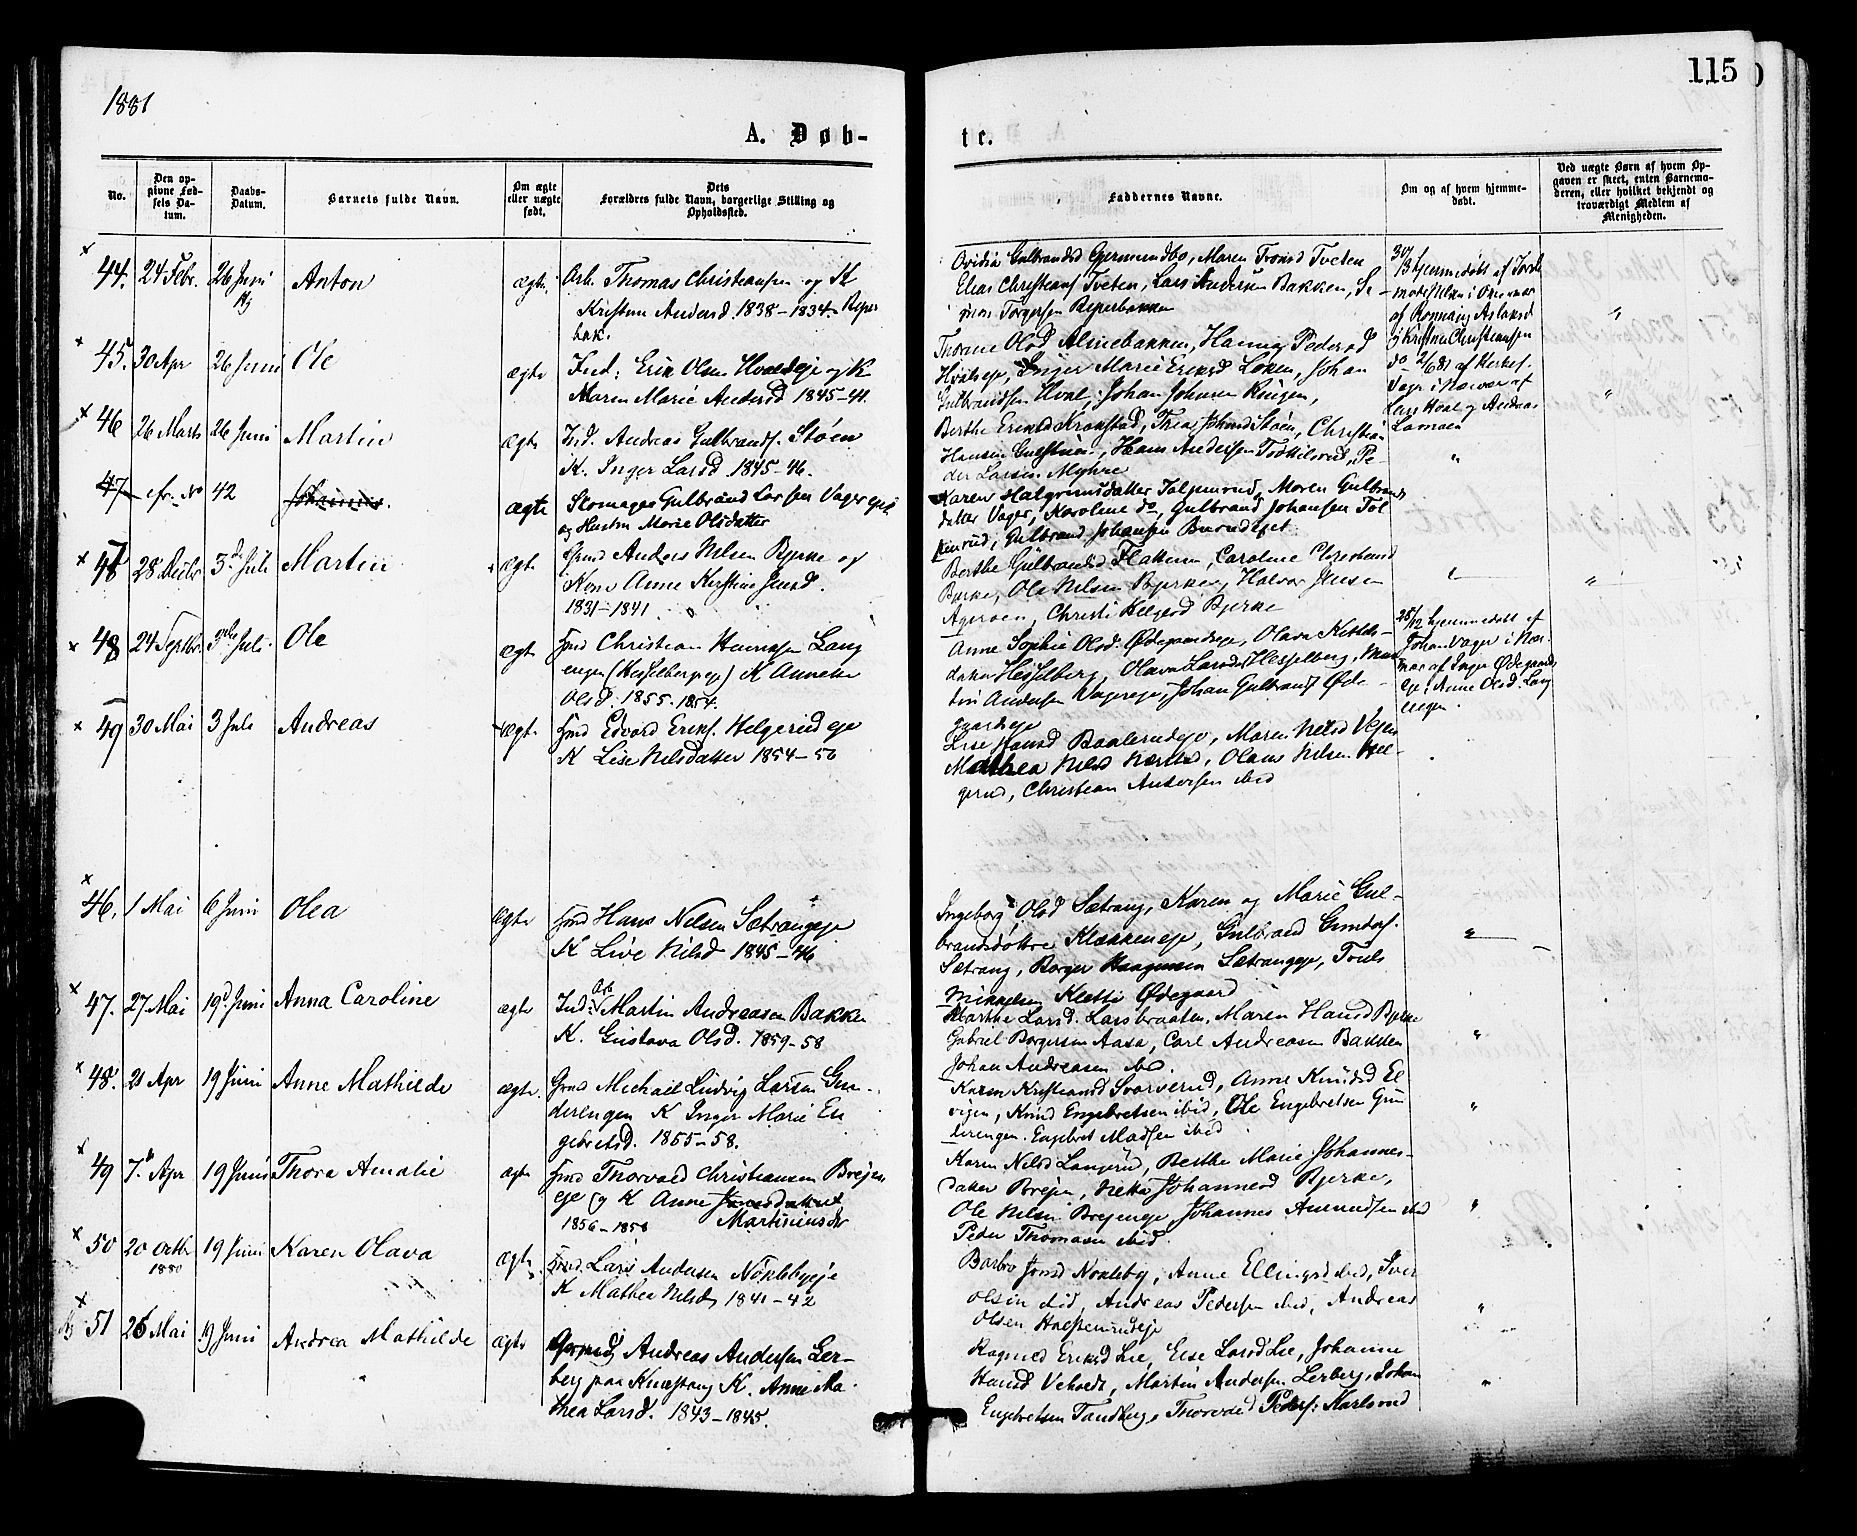 1881
115
A. Døb-
te.
No.
Den op-
givne Fød-
sels Da-
tum.
Daabs-
Datum.
Barnets fulde Navn.
Om ægte
eller uægte
født.
Dets
Forældres fulde Navn, borgerlige Stilling og
Opholdssted.
Faddernes Navne.
Om og af hvem hjemme-
døbt.
Ved uægte Børn af hvem Op-
gaven er skeet, enten Barnemo-
deren, eller hvilket bekjendt og
troværdigt Medlem af
Menigheden.
44. 24 Febr. 26 Juni Anton ægte. Arb. Thomas Christiansen og K
Kristine Andersd. 1838-1834
Gulbrandsd Gjermundbo, Maren Tronsd Tveten
Elias Christians Tveten, Lars Andersen Bakken, Si-
mon Torgersen
hjemmedøbt af
45. 30 Apr 26 Juni Ole ægte Ind: Erik Olsen Hvalseje og K
Maren Marie Andersd 1845-44.
Olsd Almebakken, Hanna Pedersd
Hvalseje, Inger Marie Eriksd Loken, Johan
Gulbrandsen Hval, Johan Johnsen Ringen,
46 26 Marts 26 Juni Martin ægte Ind. Andreas Gulbrands. Støen
K. Inger Larsd 1845-46.
Berthe Eriksd Krakstad, Thea Johnsd Støen, Christian
Hansen, Hans Andersen, Pe-
der Larsen Myhre
47 cfr. No 42 ægte Gulbrand Larsen Vagereje
og Hustru Marie Olsdatter
Karen Halgrimsdatter, Maren Gulbrands
datter Vager, Karoline do, Gulbrand Johansen Tol
pinrud, Gulbrand Johansen
47 28 Decbr 3die Juli Martin ægte Gmd Anders Nilsen Bjerke og
Kone Anne Kirstine Jensd.
1831-1841
Berthe Gulbrandsd Flakum, Caroline
Bjerke, Ole Nilsen Bjerke, Halvor Jensen
Christi Helgesd Bjerke
48 24 Septbr. 3die Juli Ole ægte Hmd Christian Hansen Lang
engen (Hesselbergeje) K Annette
Olsd. 1855-1854.
Anne Sophie Olsd. Ødegaardseje, Olava
datter Hesselberg, Olava Larsdtr Hesselberg, Mar
tin Andersen Vagereje, Johan Gulbrands Øde-
gaardseje
hjemmedøbt af
Johan Vager i Nær-
vær af Inger Ødegaards
eje, Anne Olsd. Lang
engen.
49 30 Mai 3 Juli Andreas ægte Hmd Edvard Eriks. Helgerudeje
K Lise Nilsdatter 1854-56
Lise Hansd, Maren Nilsd Vejen
Mathea Nilsd, Olaus Nilsen Hel-
gerud, Christian Andersen ibid
46. 1 Mai 6 Juni Olea ægte Hmd Hans Nilsen Sætrangeje
K Live Nilsd 1845-46
Ingeborg Olsd Sætrang, Karen og Marie Gul-
brandsdøttre Klækkeneje, Gulbrand
Sætrang, Borger Haagensen Sætrangeje, Truls
Mikkelsen Klette Ødegaard
47. 27 Mai 19d Juni Anna Caroline ægte Ind: Arb Martin Andreasen Bakke
K. Gustava Olsd. 1859-58
Marthe Larsd. Larsbraaten, Maren Hansd Bjerke
Gabriel Borgersen Aasa, Carl Andreasen Bakken
Johan Andreasen ibid.
48. 21 Apr 19 Juni Anne Mathilde ægte. Gmd Michael Ludvig Larsen Gun-
derengen K Inger Marie En
gebretsd. 1855-58.
Karen Kristiansd Svarverud, Anne Knudsd El
vigen, Knud Engebretsen ibid, Ole Engebretsen Gun
derengen. Engebret Madsen ibid
49 7de Apr 19 Juni Thora Amalie ægte Hmd Thorvald Christiansen Brejen
eje og K Anne Jensdatter
Martiniusdtr
1856-1856
Karen Nilsd Langerud, Berthe Marie Johannes-
datter Brejen, Johannesd Bjerke,
Ole Nilsen Brejeneje, Johannes Amundsen ibid
Peder Thomasen ibid.
50 20 Octbr 1880 19 Juni Karen Olava ægte. Hmd. Lars Andersen Nøklebyeje
K Mathea Nilsd 1841-42
Barbro Jonsd Nøkleby, Anne Ellingsd ibid, Iver
Olsen ibid, Andreas Pedersen ibid, Andreas
Olsen
51 26 Mai 19 Juni Andrea Mathilde ægte Andreas Andersen Ler-
berg paa K. Anne Ma-
thea Larsd. 1843-1845.
Ragnild Eriksd Lie, Else Larsd Lie, Johanne
Hansd, Martin Andersen Lerberg, Johan
Engebretsen Tandberg, Thorvald Peders: Karlsrud